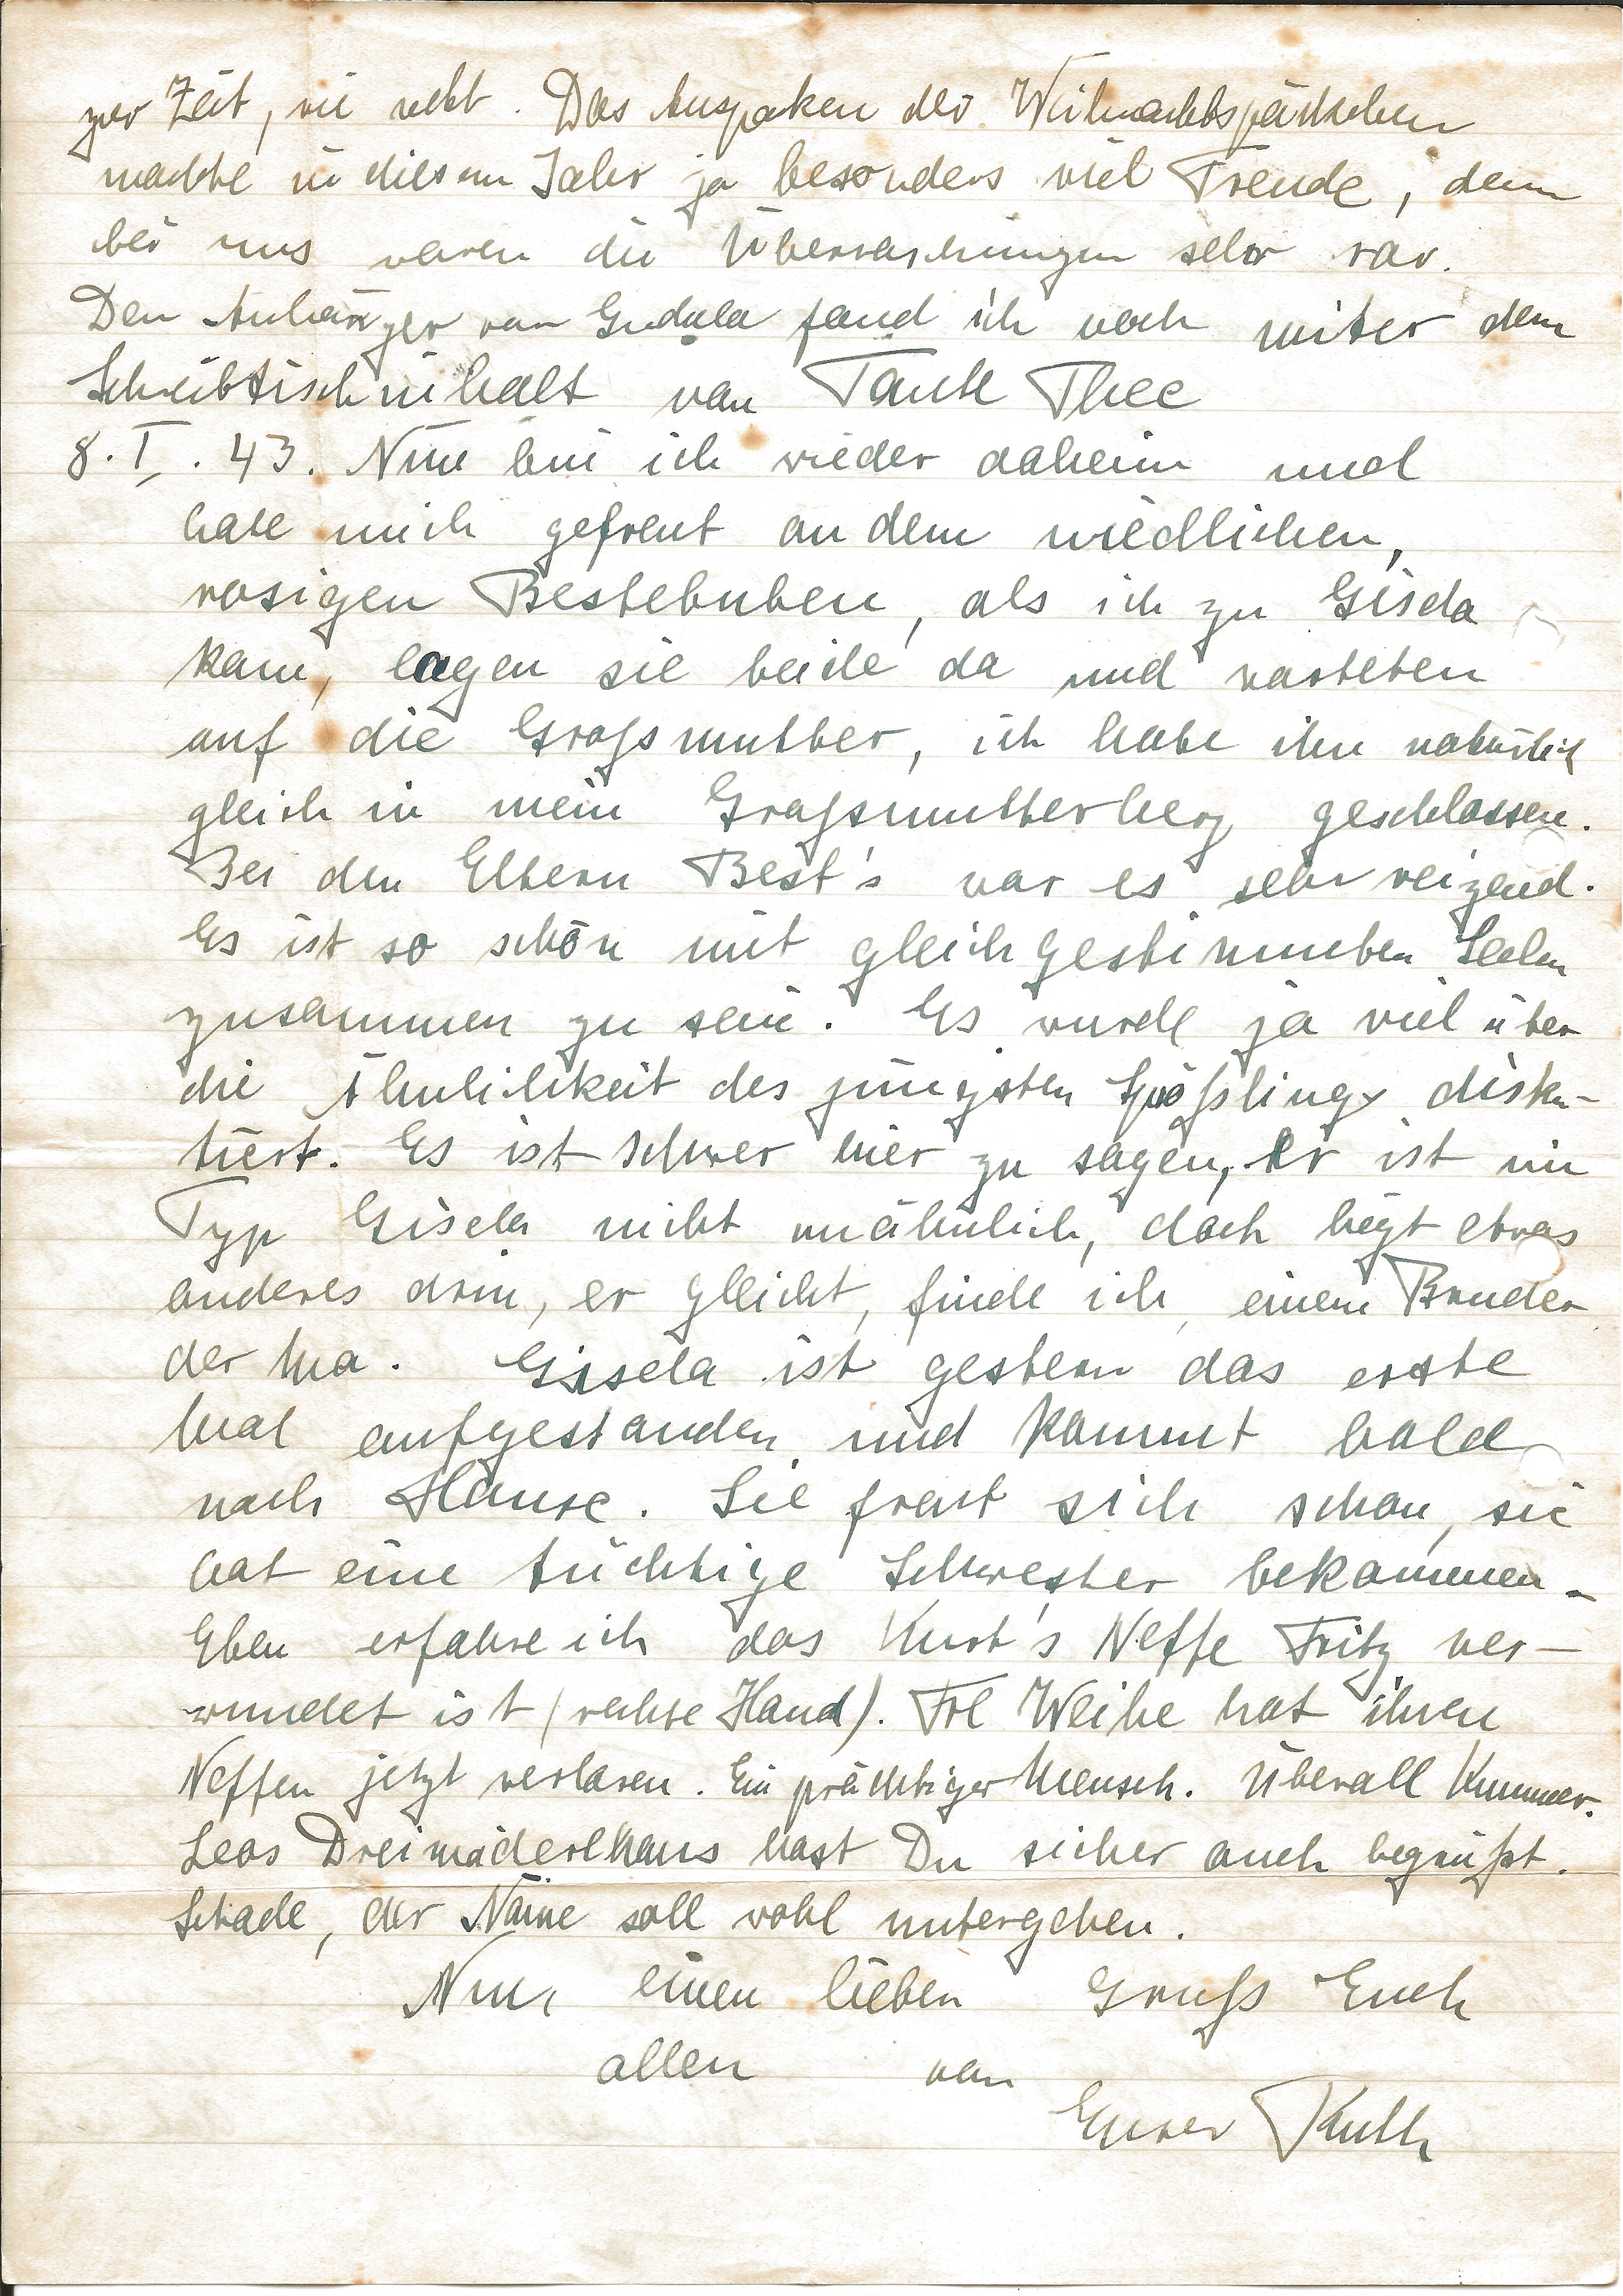 zur Zeit, wie nett. Das Auspaken der Weihnachtspäckchen
machte in diesem Jahr ja besonders viel Freude, denn
bei uns waren die Überraschungen sehr rar.
Den Anhänger von Gudula fand ich noch unter dem
Schreibtischinhalt von Tante Thee
8. I. 43. Nun bin ich wieder daheim und
habe mich gefreut an dem niedlichen,
rosigen Bestebuben, als ich zu Gisela
kam, lagen sie beide da und warteten
auf die Großmutter, ich habe ihn natürlich
gleich in mein Großmutterherz geschlossen.
Bei den Eltern Best's war es sehr reizend.
Es ist so schön mit gleichgestimmten Seelen
zusammen zu sein. Es wurde ja viel über
die Ähnlichkeit des jüngsten Sprößlings disku-
tiert. Es ist schwer hier zu sagen, Er ist im
Typ Gisela nicht unähnlich, doch liegt etwas
anderes drin, er gleicht, finde ich, einem Bruder
der Ma. Gisela ist gestern das erste
Mal aufgestanden und kommt bald
nach Hause. Sie freut sich schon, sie
hat eine tüchtige Schwester bekommen.
Eben erfahre ich das Kurt's Neffe Fritz ver-
wundet ist (rechte Hand). Frl Weihe hat ihren
Neffen jetzt verloren. Ein prächtiger Mensch. Überall Kummer.
Leos Dreimäderlhaus hast Du sicher auch begrüßt.
Schade, der Name soll wohl untergehen.
Nun einen lieben Gruß Euch
allen von
Eurer Ruth